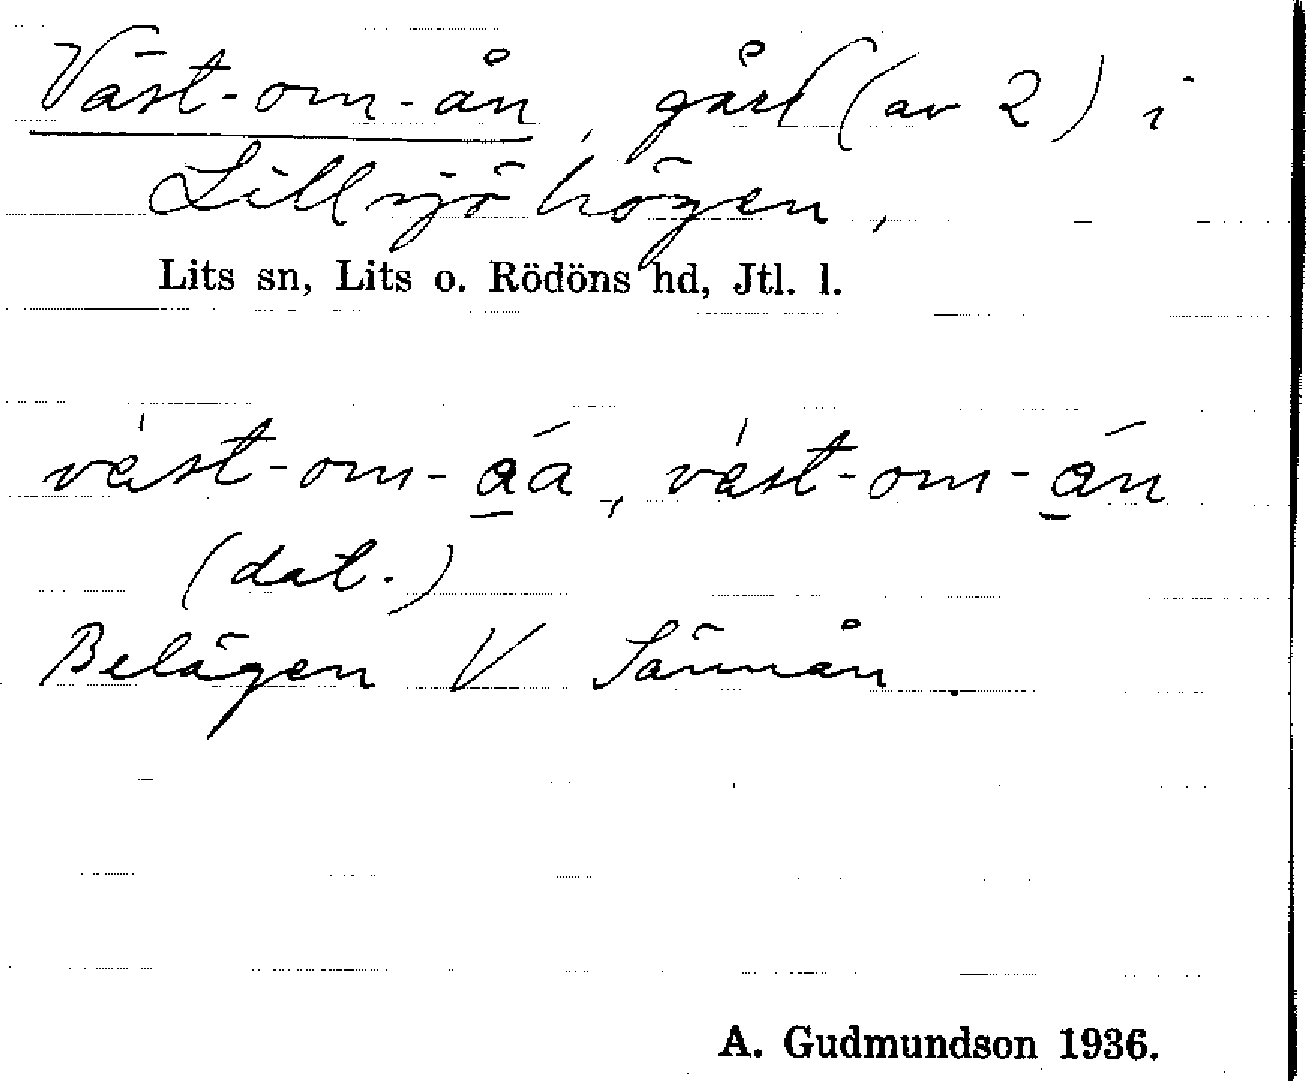 Väst-om-ån, gård (av 2) i
Lillsjöhögen,
Lits sn, Lits o. Rödöns hd, Jtl. l.
vást-om-a̲á, vást-om-á̲n
(dat.)
Belägen V Sännån.
A. Gudmundson 1936.